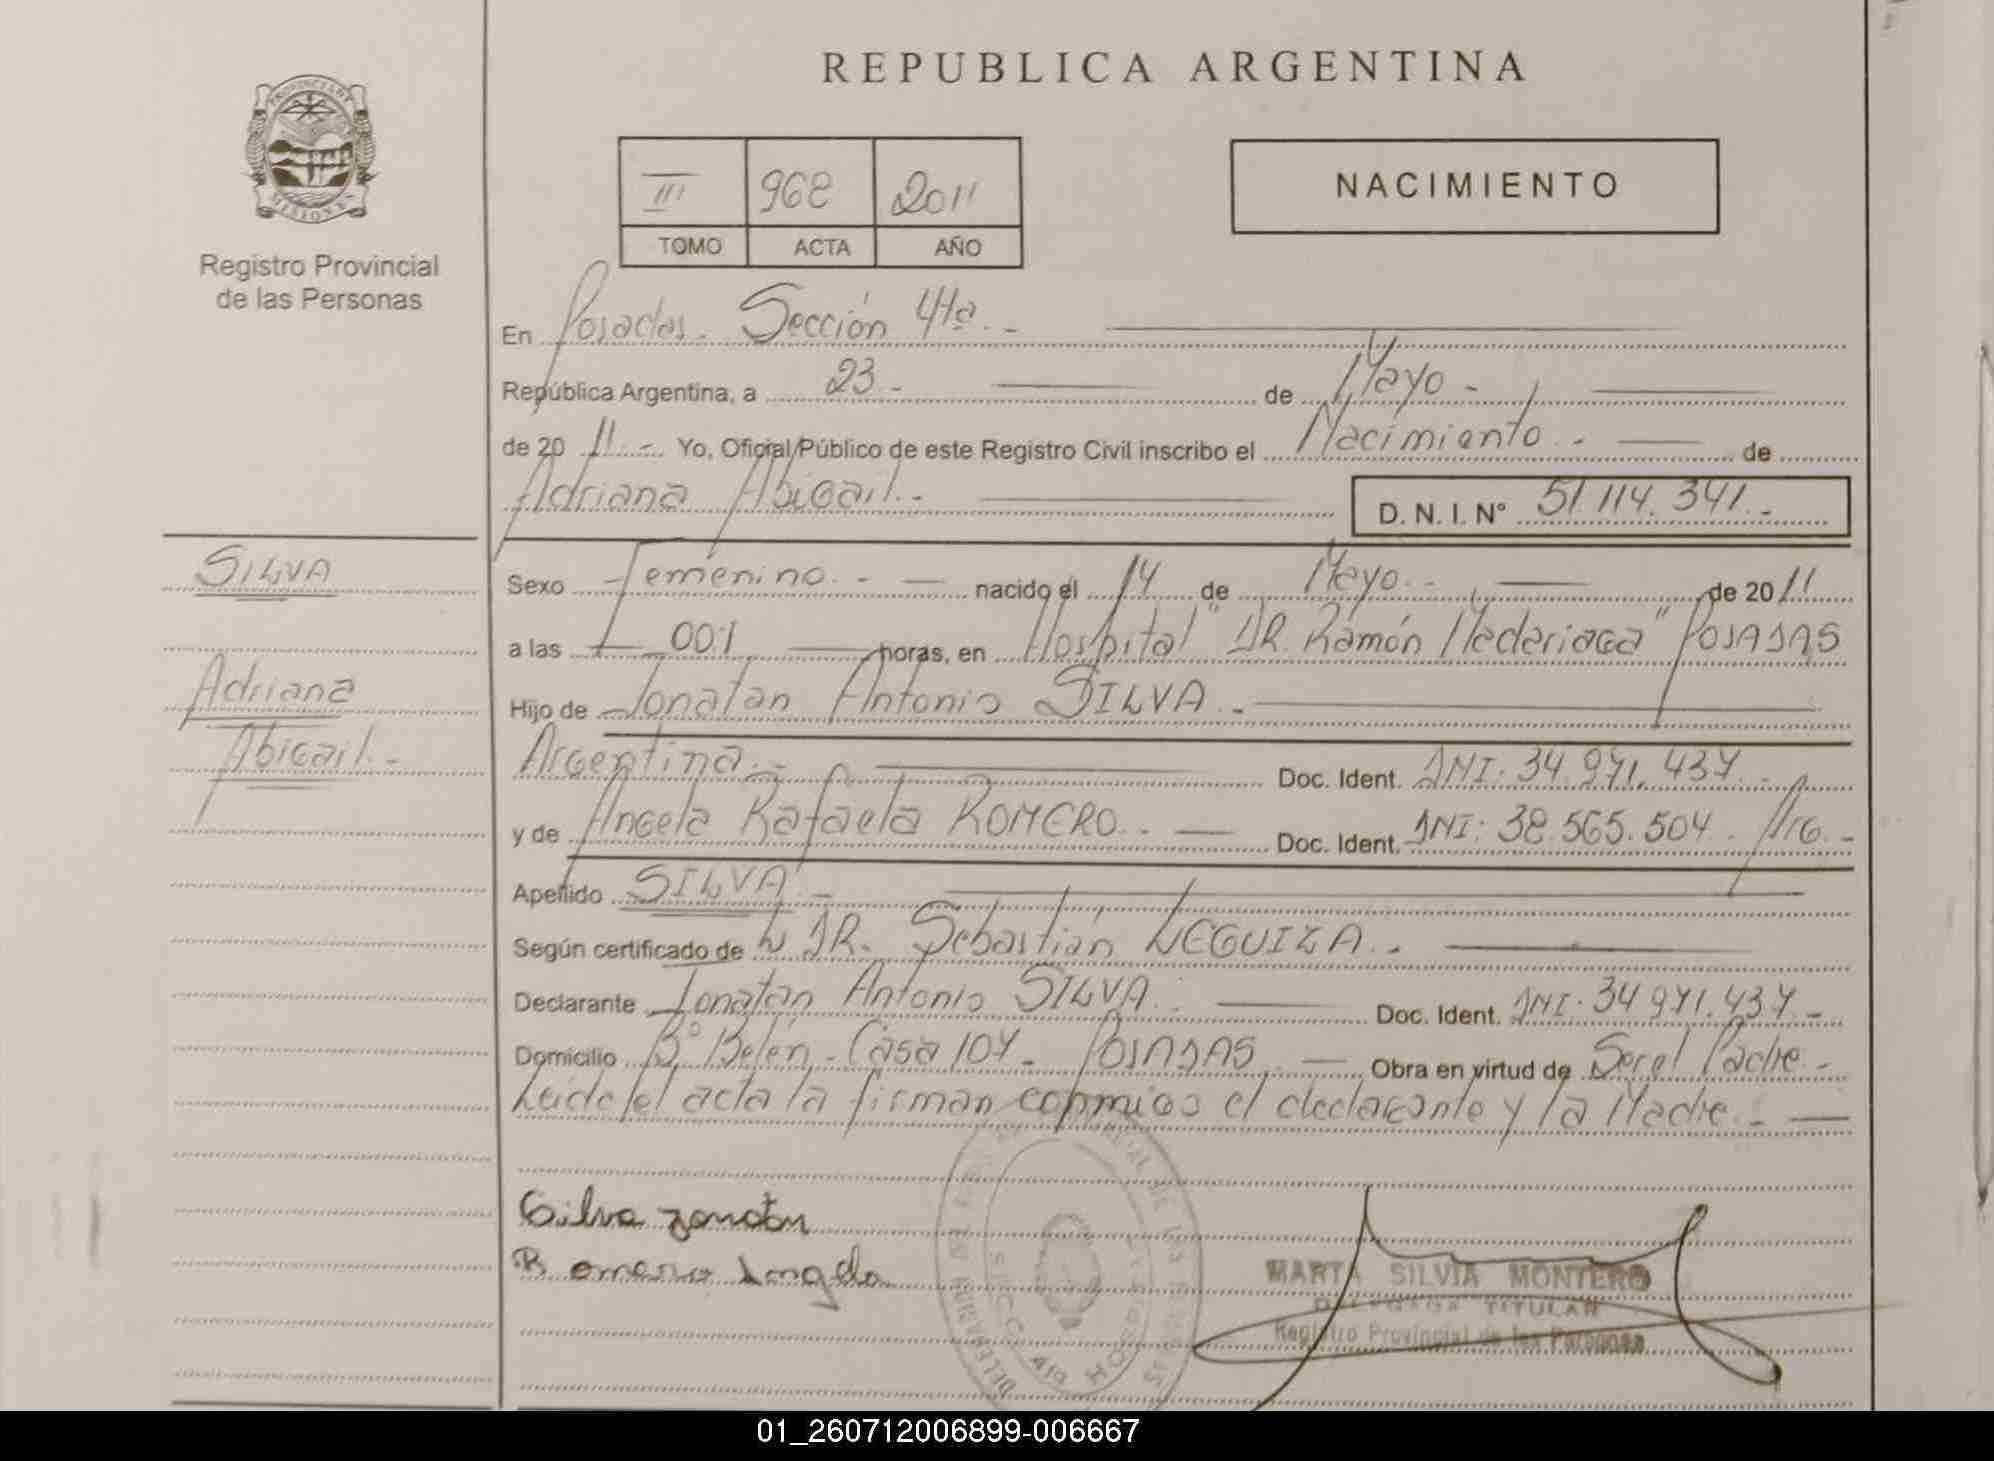 REPUBLICA ARGENTINA
PROVINCIA DE MISIONES
Registro Provincial
de las Personas
III 968 2011
TOMO ACTA AÑO
NACIMIENTO
En Posadas - Sección 4ta -
República Argentina, a 23 - de Mayo -
de 20 11 - Yo, Oficial Público de este Registro Civil inscribo el Nacimiento - de
Adriana Abigail - D. N. I. N° 51.114.341 -
SILVA
Adriana
Abigail -
Sexo Femenino - nacido el 14 de Mayo - de 20 11
a las 00:1 horas, en Hospital "DR. Ramón Madariaga" POSADAS
Hijo de Jonatan Antonio SILVA -
Argentina - Doc. Ident. DNI: 34.971.437 -
y de Angela Rafaela ROMERO - Doc. Ident. DNI: 38.565.504. Arg -
Apellido SILVA -
Según certificado de DR. Sebastián LEGUIZA -
Declarante Jonatan Antonio SILVA - Doc. Ident. DNI: 34.971.437 -
Domicilio B° Belén - Casa 107 - POSADAS - Obra en virtud de Ser el Padre -
Leida el acta la firman conmigo el declarante y la Madre -
Silva Jonatan
Romero Angela
MARTA SILVIA MONTERO
DELEGADA TITULAR
Registro Provincial de las Personas
01_260712006899-006667